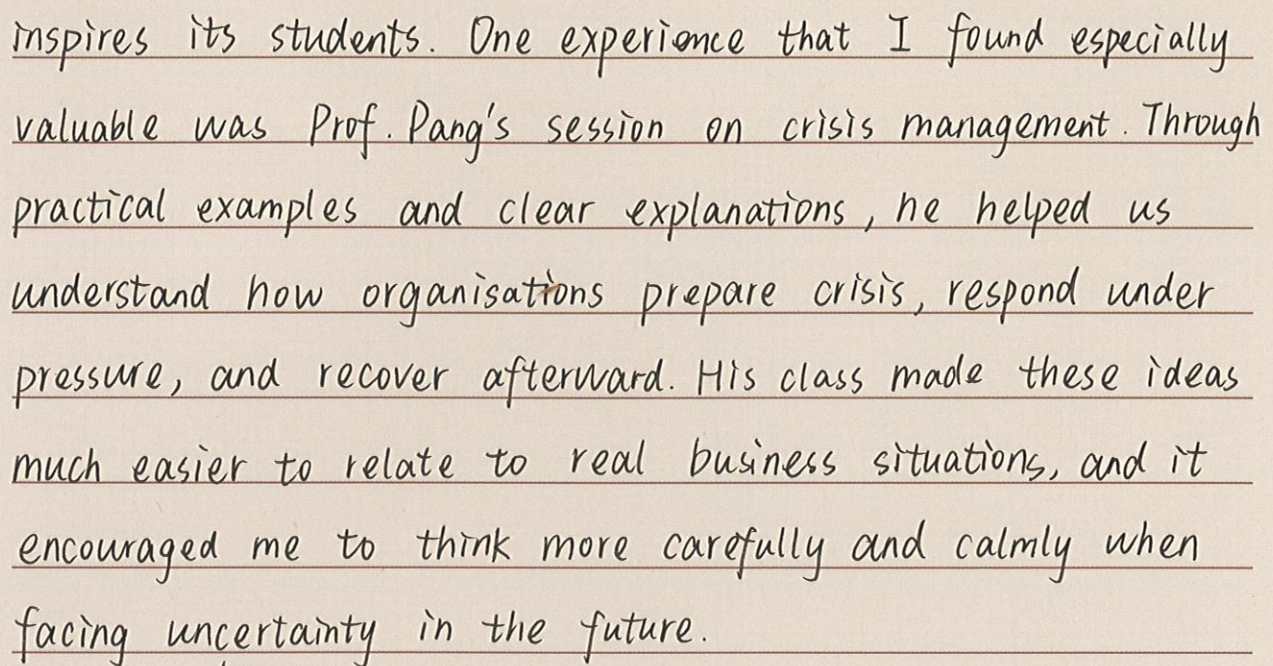 inspires its students. One experience that I found especially
valuable was Prof. Pang's session on crisis management. Through
practical examples and clear explanations, he helped us
understand how organisations prepare crisis, respond under
pressure, and recover afterward. His class made these ideas
much easier to relate to real business situations, and it
encouraged me to think more carefully and calmly when
facing uncertainty in the future.